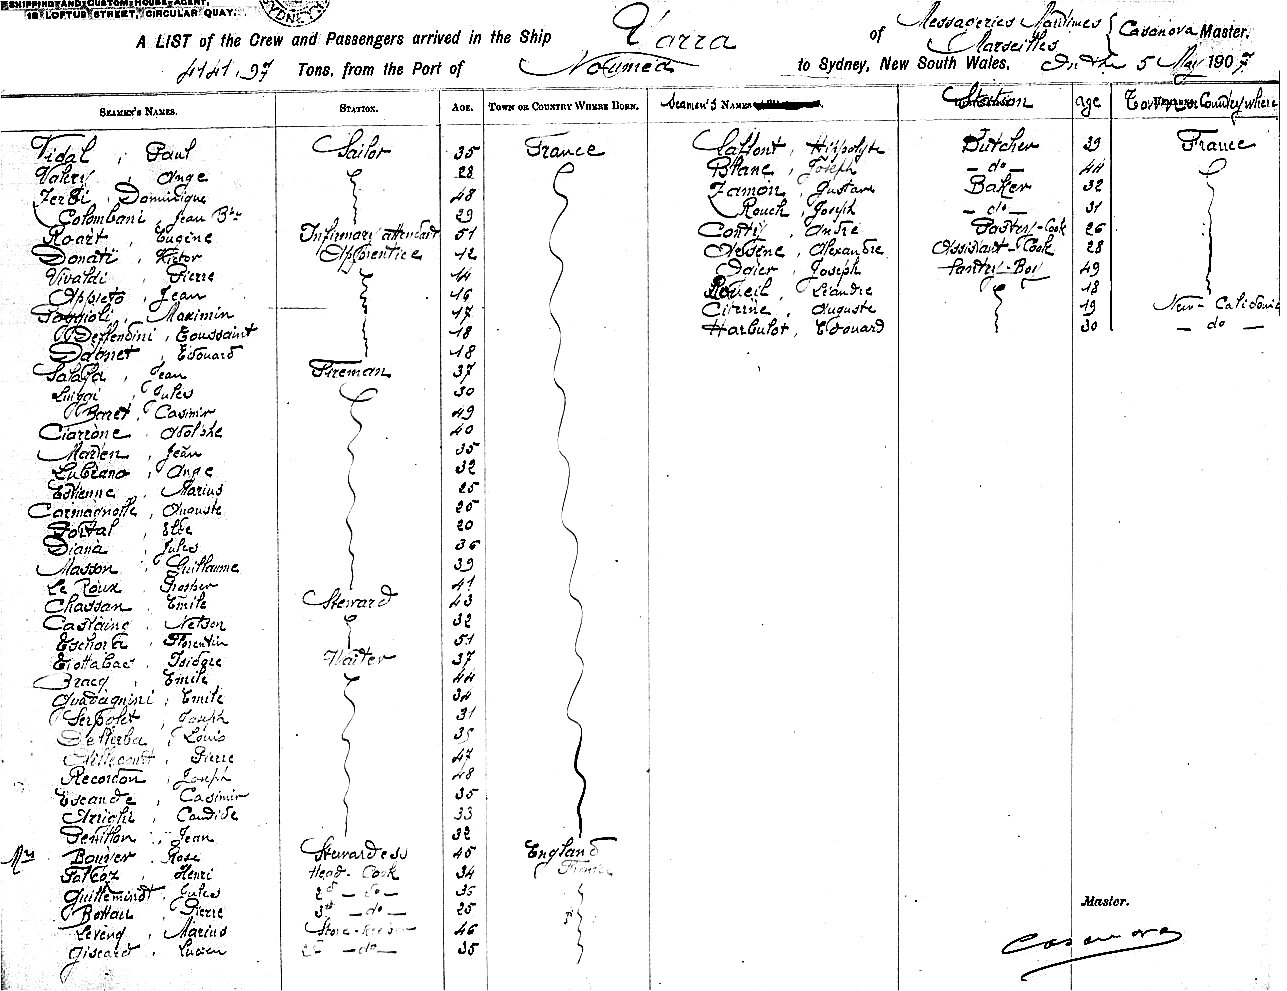 SHIPPING AND CUSTOM HOUSE AGENT,
16 LOFTUS STREET, CIRCULAR QUAY.
SYDNEY
A LIST of the Crew and Passengers arrived in the Ship Yarra of Messageries Maritimes Marseilles Casanova Master.
4141.97 Tons, from the Port of Noumea to Sydney, New South Wales, 5 May 1907
SEAMEN'S NAMES. STATION. AGE. TOWN OR COUNTRY WHERE BORN. Seamen's NAMES Station age Country where
Vidal, Paul Sailor 35 France
Valery, Ange 28
Ferdi, Dominique 48
Colombani, Jean Bte 29
Roart, Eugène Infirmary attendant 51
Donati, Victor Apprentice 12
Vivaldi, Pierre 14
Appieto, Jean 16
Poggioli, Maximin 17
Deffendini, Toussaint 18
Édouard 18
Jean Fireman 37
Luigi, Jules 30
Casimir 49
Ciarrone, Adolphe 40
Jean 35
Lubrano, Ange 32
Estienne, Marius 25
Carmagnolle, Auguste 25
20
Diana, Jules 36
Masson, Guillaume 39
Le Roux, Prosper 41
Chassan, Emile Steward 43
Castaing, Nelson 32
Florentin 51
Isidore Waiter 37
Emile 44
Quadagnini, Emile 34
Serpolet, Joseph 31
Louis
Pierre 47
Recordon, Joseph 48
Escande, Casimir 35
Arrighi, Candide 33
Jean 32
Mrs Bouvier, Rose Stewardess 45 England
Henri Head-Cook 34 France
Guilleminot, Jules 2d — do — 35
Pierre 3rd — do — 25
Marius Store-keeper 46
Giscard, Lucien 2d — do — 35
Laffont, Hippolyte Butcher 39 France
Blanc, Joseph — do — 44
Zamon, Gustave Baker 32
Rouch, Joseph — do — 31
Conty, André Pastry-Cook 26
Alexandre Assistant-Cook 28
Ogier, Joseph Pantry-Boy 49
Léandre 18
Citrine, Auguste 19 New-Caledonia
Harbulot, Edouard 30 — do —
Master.
Casanova